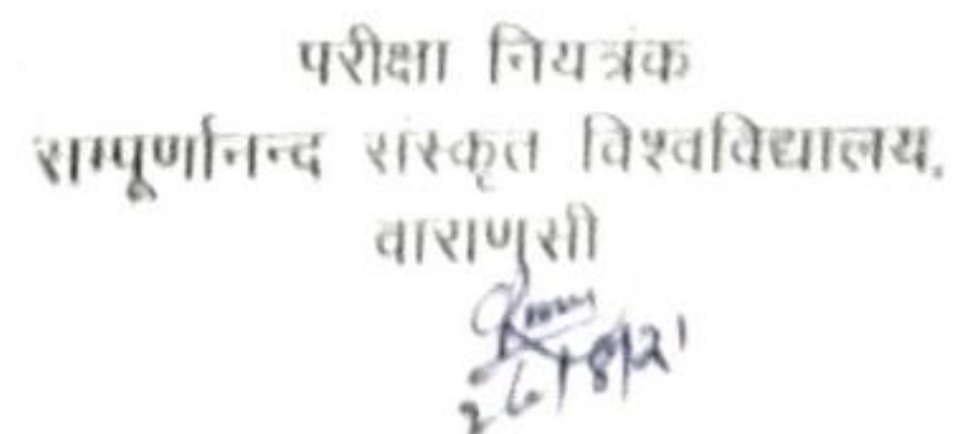 परीक्षा नियत्रंक
सम्पूर्णानन्द संस्कृत विश्वविद्यालय,
वाराणसी
26/8/21